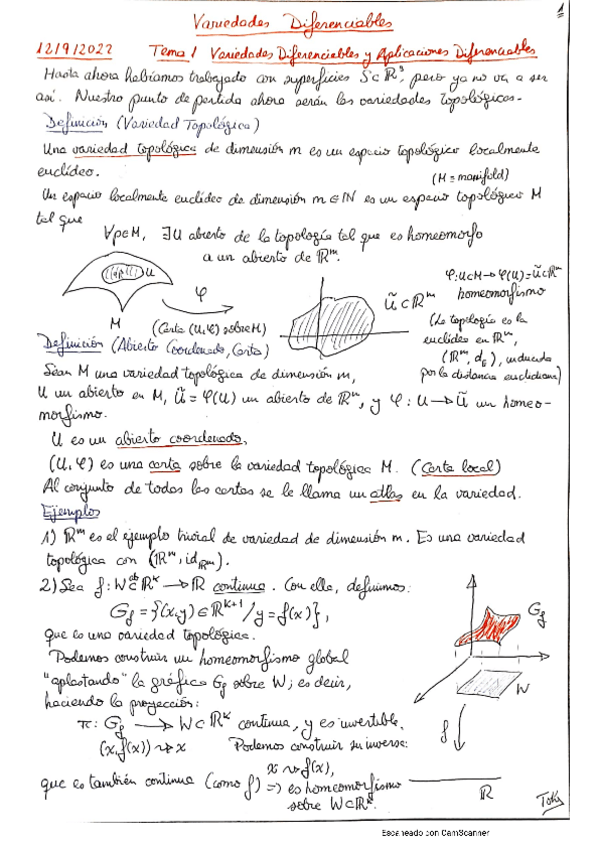 1
Variedades Diferenciables
12/9/2022 Tema 1 Variedades Diferenciables y Aplicaciones Diferenciables
Hasta ahora habíamos trabajado con superficies S⊂ℝ³, pero ya no va a ser
así. Nuestro punto de partida ahora serán las variedades topológicas.
Definición (Variedad Topológica)
Una variedad topológica de dimensión m es un espacio topológico localmente
euclídeo.
(M ≡ manifold)
Un espacio localmente euclídeo de dimensión m∈ℕ es un espacio topológico M
tal que
∀p∈M, ∃U abierto de la topología tal que es homeomorfo
a un abierto de ℝᵐ.
U
φ
M
(Carta (U,φ) sobre M)
Ũ⊂ℝᵐ
φ:U⊂M→φ(U)=Ũ⊂ℝᵐ
homeomorfismo
(La topología es la
euclídea en ℝᵐ,
(ℝᵐ, d_E), inducida
por la distancia euclidiana)
Definición (Abierto Coordenado, Carta)
Sean M una variedad topológica de dimensión m,
U un abierto en M, Ũ = φ(U) un abierto de ℝᵐ, y φ: U→Ũ un homeo-
morfismo.
U es un abierto coordenado,
(U,φ) es una carta sobre la variedad topológica M. (Carta local)
Al conjunto de todas las cartas se le llama un atlas en la variedad.
Ejemplos
1) ℝᵐ es el ejemplo trivial de variedad de dimensión m. Es una variedad
topológica con (ℝᵐ, id_ℝᵐ).
2) Sea f: W⊂ℝᵏ → ℝ continua. Con ella, definimos:
G_f = {(x,y)∈ℝᵏ⁺¹ / y = f(x)},
que es una variedad topológica.
Podemos construir un homeomorfismo global
"aplastando" la gráfica G_f sobre W; es decir,
haciendo la proyección:
π: G_f → W⊂ℝᵏ continua, y es invertible.
(x,f(x)) ⇝ x Podemos construir su inversa:
x ⇝ f(x),
que es también continua (como f) ⇒ es homeomorfismo
sobre W⊂ℝᵏ.
G_f
W
f
ℝ
Escaneado con CamScanner